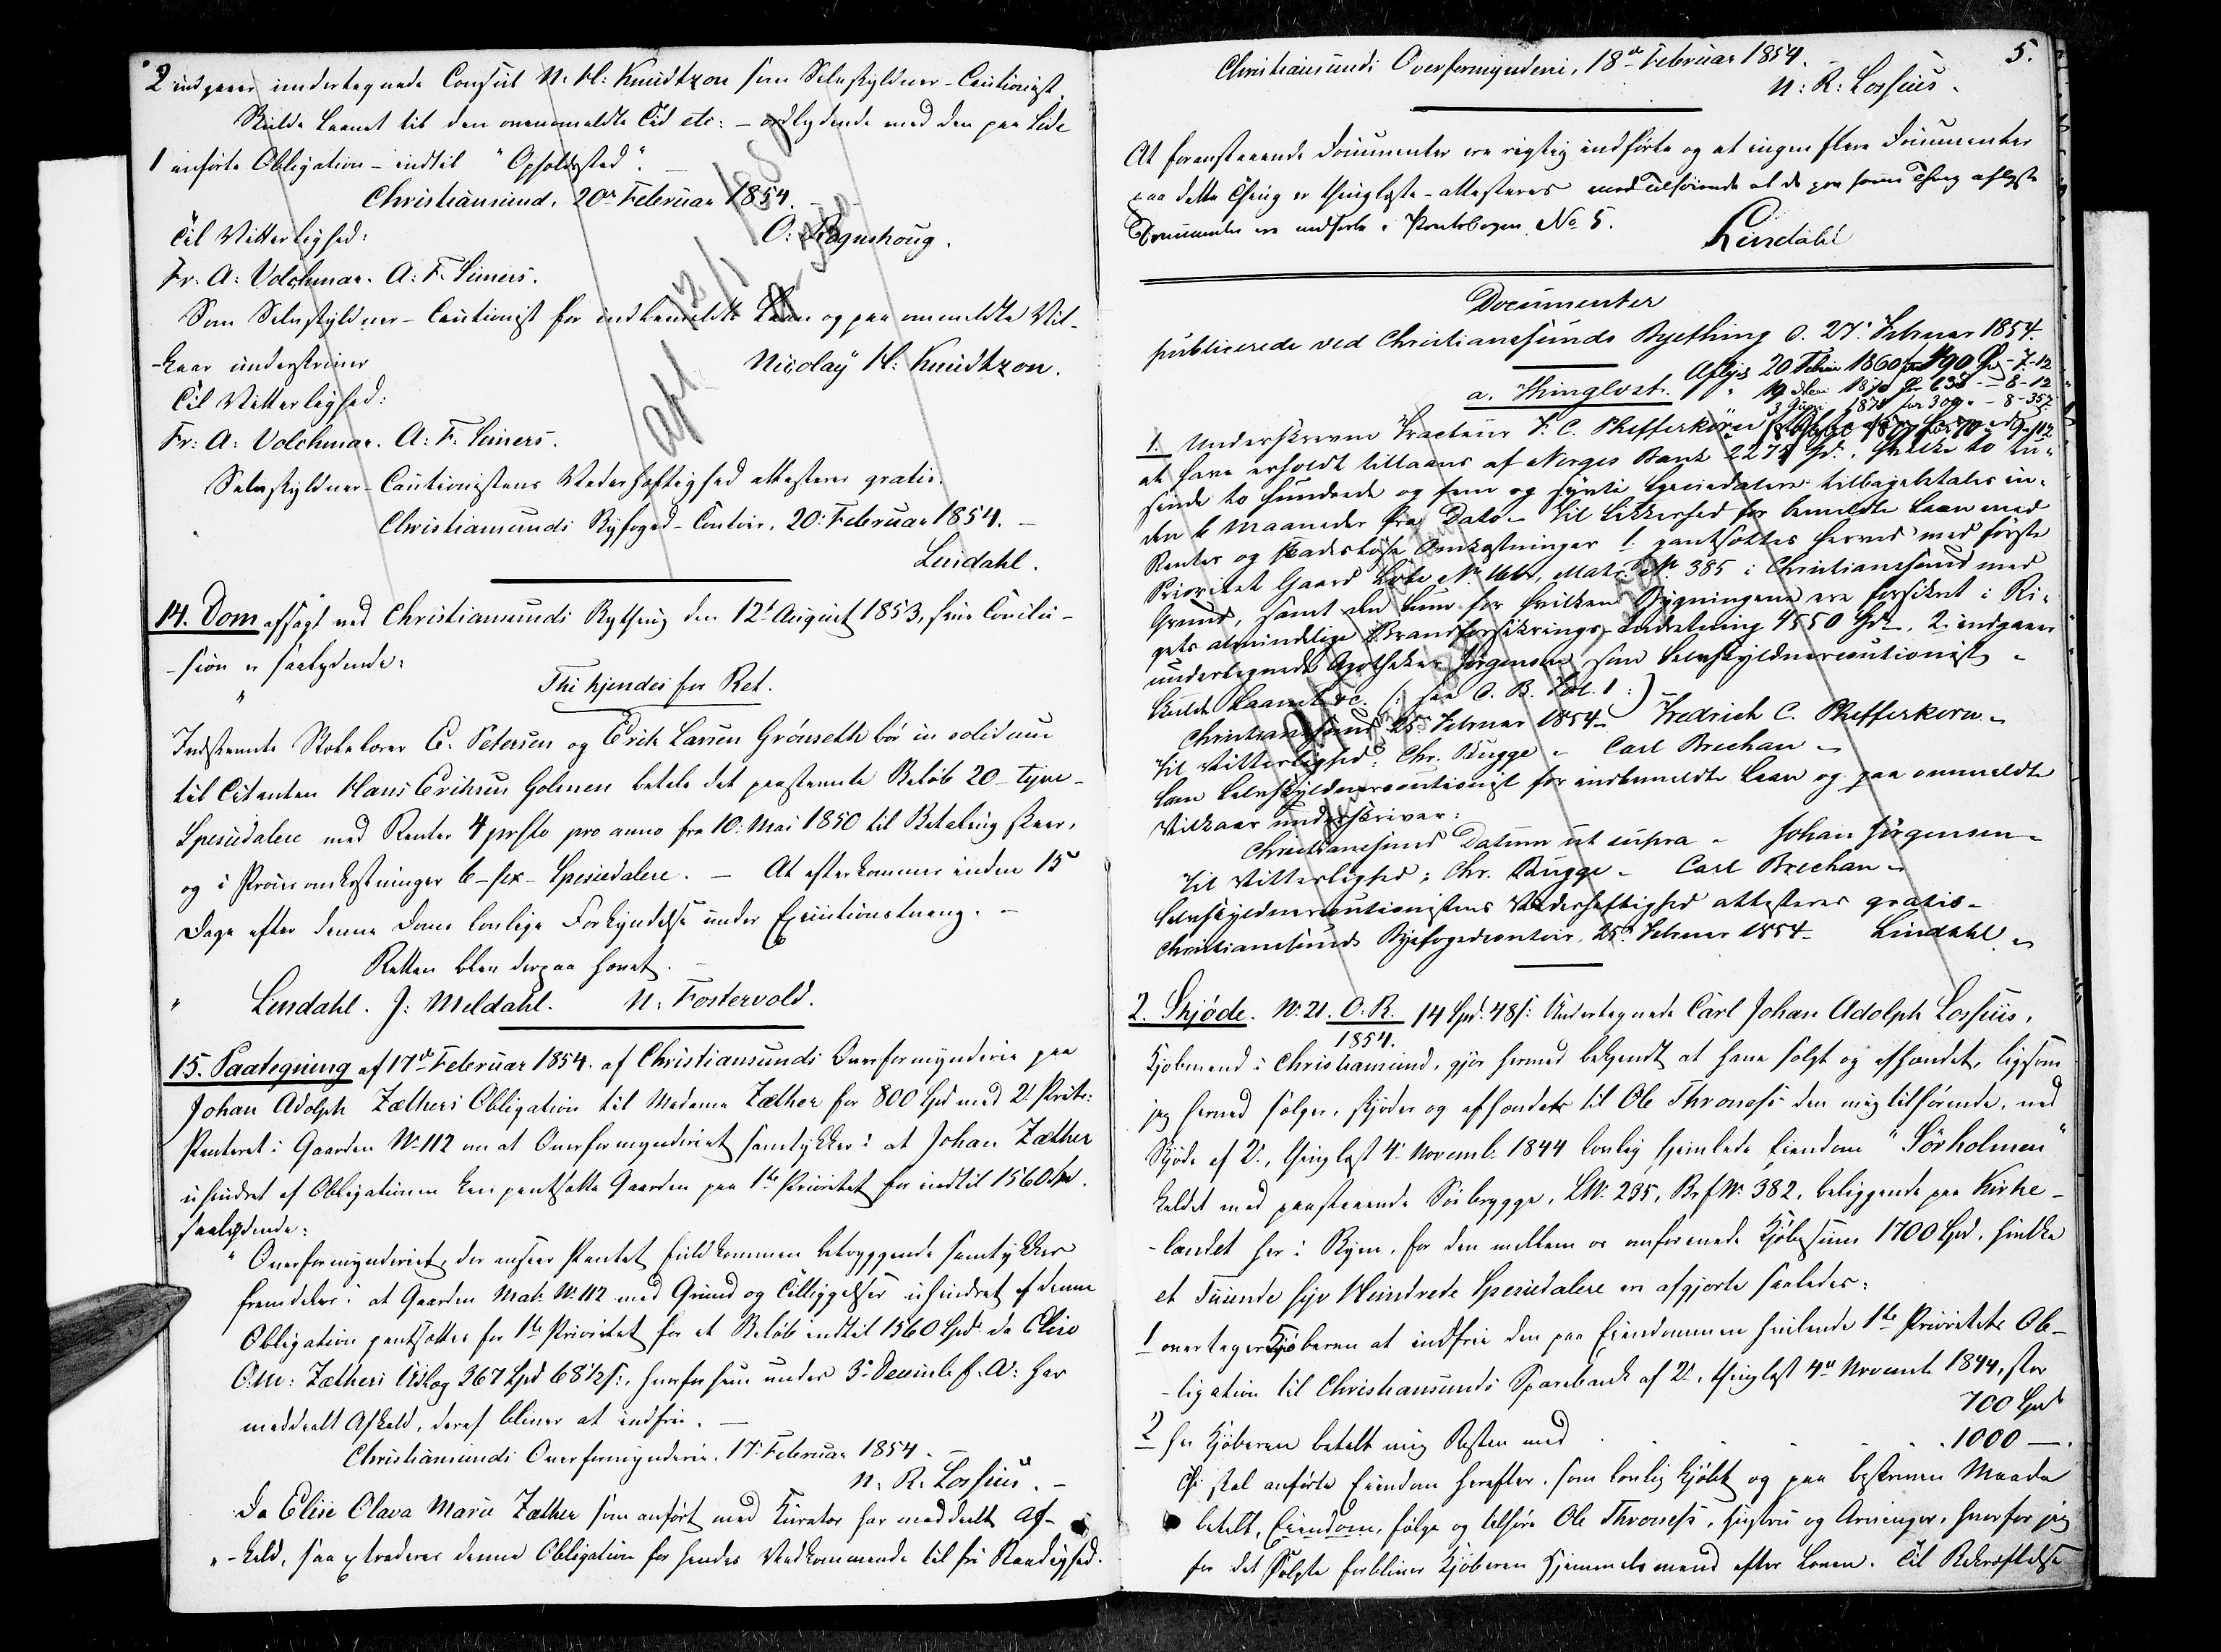 2 indgaaer undertegnede Consul N: H: Knudtzon som Selvskyldner-Cautionist.
Skulde Laanet til den ovenomeldte Tid etc: – ordlydende med den paa Side
1 anførte Obligation – indtil "Opholdssted". –
Christiansund, 20de Februar 1854. –
Til Vitterlighed: O: Rognskoug.
Fr: A: Volchmar. A: F. Simers.
Som Selvskyldner-Cautionist for indbemeldte Laan og paa ommeldte Vil-
-kaar underskriver Nicolay H: Knudtzon.
Til Vitterlighed:
Fr: A: Volchmar. A: F. Simers.
Selvskyldner-Cautionistens Vederhæftighed attesteres gratis.
Christiansunds Byfoged-Contoir, 20: Februar 1854. –
Lindahl.
14. Dom afsagt ved Christiansunds Bything den 12te August 1853, hvis Conclu-
-sion er saalydende:
Thi kjendes for Ret.
Indstevnte E. Petersen og Erik Larsen Grønseth bør in solidum
til Citanten Hans Eriksen Golmen betale det paastevnte Beløb 20 – tyve –
Spesiedalere med Renter 4 prCto pro anno fra 10: Mai 1850 til Betaling skeer,
og i Procesomkostninger 6 – sex – Spesiedalere. – At efterkommes inden 15
Dage efter denne Doms lovlige Forkyndelse under Executionstvang. –
Retten blev derpaa hævet. –
Lindahl. J: Meldahl. N: Fostervold.
15. Paategning af 17de Februar 1854 af Christiansunds Overformynderie paa
Johan Adolph Zæthers Obligation til Madame Zæther for 800 Spd med 2. Prits:
Panteret i Gaarden No 112 om at Overformynderiet samtykker i at Johan Zæther
uhindret af Obligationen kan pantsætte Gaarden paa 1ste Prioritet for indtil 1560 Spd.
saalydende:
" Overformynderiet, der anseer Pantet fuldkommen betryggende samtykker
fremdeles i at Gaarden Matr No 112 med Grund og Tilliggelser uhindret af denne
Obligation pantsættes for 1ste Prioritet for et Beløb indtil 1560 Spd. da Elise
O: M: Zæthers Udlæg 267 Spd 68 1/2 s:, hvorfor hun under 3de Decemb f. A: har
meddeelt Afkald, deraf bliver at indfrie. –
Christiansunds Overformynderie. 17de Februar 1854.
N: R: Lossius. –
Da Elise Olava Marie Zæther som anført med Curator har meddeelt Af-
-kald, saa extraderes denne Obligation for hendes Vedkommende til fri Raadighed.
afl. 12/1 1880
Christiansunds Overformynderie, 18de Februar 1854. 5.
N: R: Lossius.
At foranstaaende Documenter ere rigtig indførte og at ingen flere Documenter
paa dette Thing er thinglæste – attesteres med Tilføiende at de paa samme Thing aflyste
Documenter ere indførte i Protocollen No 5.
Lindahl
Documenter
publicerede ved Christianssunds Bything d. 27. Februar 1854.
a. Thinglæst. Aflyst 20 Febr 1860 for 490 Spd – 7-12
19 1870 for 635 – 8-12
3 Juni 1871 for 300 – 8-357
1. Underskrevne Tracteur F. C. Phefferkorn
at have erholdt tillaans af Norges Bank 2275 Spd., hvilke to tu-
sinde to hundrede og fem og syvti Speciedalere tilbagebetales in-
den 6 Maaneder fra Dato – Til Sikkerhed for bemeldte Laan med
Renter og skadesløse Omkostninger 1. pantsættes herved med første
Prioritet Gaard Løbe No 166, Matr: No 385 i Christianssund med
Grund, samt den Sum for hvilken Bygningerne ere forsikret i Ri-
gets almindelige Brandforsikrings-Indretning 4550 Spd., 2. indgaaer
undertegnede Apotheker Jørgensen som Selvskyldnercautionist –
Skulde Laanet &c. (: see O. B. Fol. 1 :) –
Christianssund 25. Februar 1854 – Fredrich C. Phefferkorn –
Til Vitterlighed: Chr. Bugge – Carl Brechan –
Som Selvskyldnercautionist for indbemeldte Laan og paa ommeldte
Vilkaar underskriver:
Christianssund Datum ut supra – Johan Jørgensen –
Til Vitterlighed: Chr. Bugge – Carl Brechan –
Selvskyldnercautionistens Vederhæftighed attesteres gratis –
Christianssunds Byefogedcontoir, 25. Februar 1854 – Lindahl –
2. Skjøde. No. 21. O: R. 14 Spd. 48 s: Undertegnede Carl Johan Adolph Lossius,
1854.
Kjøbmand i Christiansund, gjør hermed bekjendt at have solgt og afhændet, ligesom
jeg herved sælger, skjøder og afhænder til Ole Throness den mig tilhørende, ved
Skjøde af 2., thinglæst 4de Novemb: 1844 lovlig hjemlede Eiendom "Sørholmen"
kaldet med paastaaende Søebrygge, LNo. 295, Brf No. 382, beliggende paa Kirke-
-landet her i Byen, for den mellem os omforenede Kjøbesum 1700 Spd, hvilke
et Tusinde syv Hundrede Spesiedalere ere afgjorte saaledes:
1 overtager Kjøberen at indfrie den paa Eiendommen heftende 1ste Prioritets Ob-
-ligation til Christiansunds Sparebank af 2., thinglæst 4de Novemb 1844, stor
700 Spd
2 har Kjøberen betalt mig Resten med . . . . 1000 –.
Thi skal anførte Eiendom herefter, som lovlig kjøbt og paa beskreven Maade
betalt, Eiendom, følge og tilhøre Ole Throness, Hustru og Arvinger, hvorfor jeg
for det Solgte forbliver Kjøberen Hjemmelsmand efter Loven. Til Bekræftelse